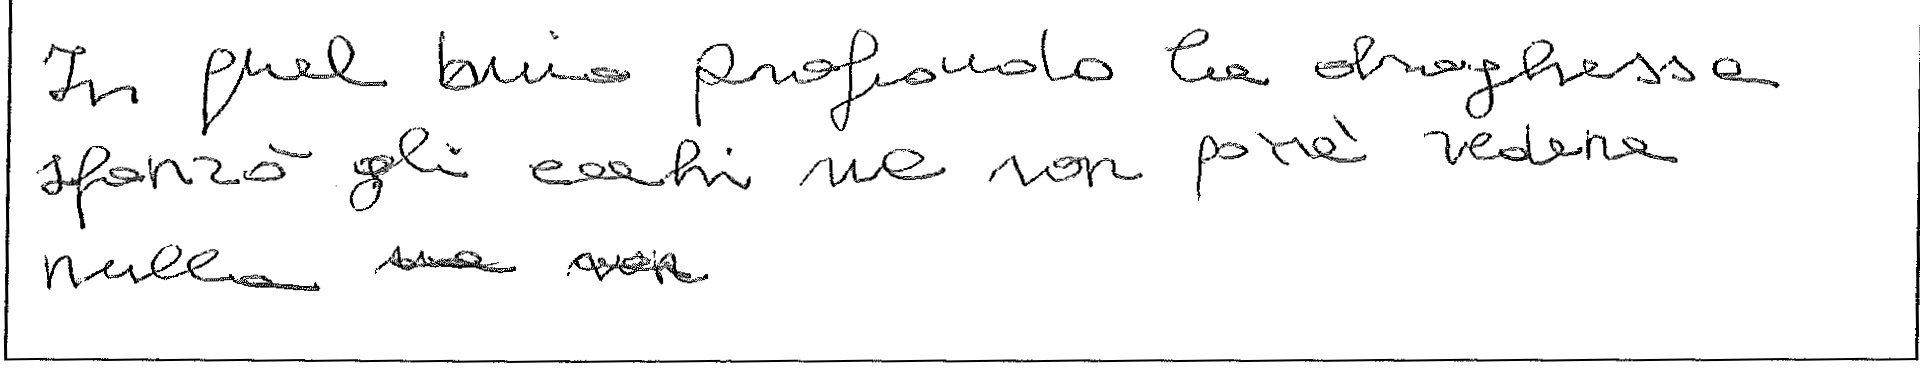 In quel buio profondo la draghessa
sforzò gli occhi ma non potè vedere
nulla ma non